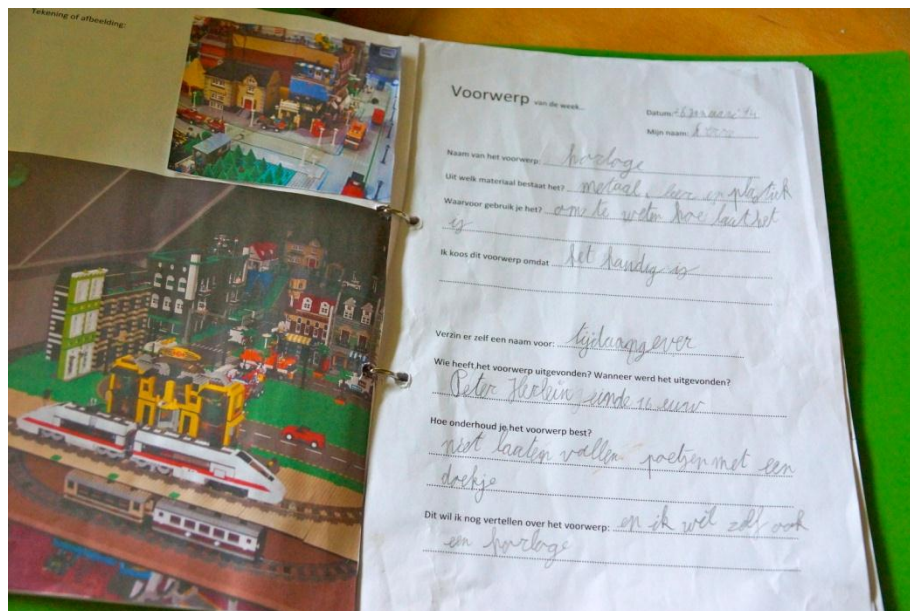 Tekening of afbeelding:
Voorwerp van de week...
Datum: 16 januari '14
Mijn naam:
Naam van het voorwerp: horloge
Uit welk materiaal bestaat het? metaal, leer en plastiek
Waarvoor gebruik je het? om te weten hoe laat het
is
Ik koos dit voorwerp omdat het handig is
Verzin er zelf een naam voor: tijdaangever
Wie heeft het voorwerp uitgevonden? Wanneer werd het uitgevonden?
Peter Herlein, einde 16 euw
Hoe onderhoud je het voorwerp best?
niet laaten vallen poetsen met een
doekje
Dit wil ik nog vertellen over het voorwerp: en ik wil zelf ook
een horloge